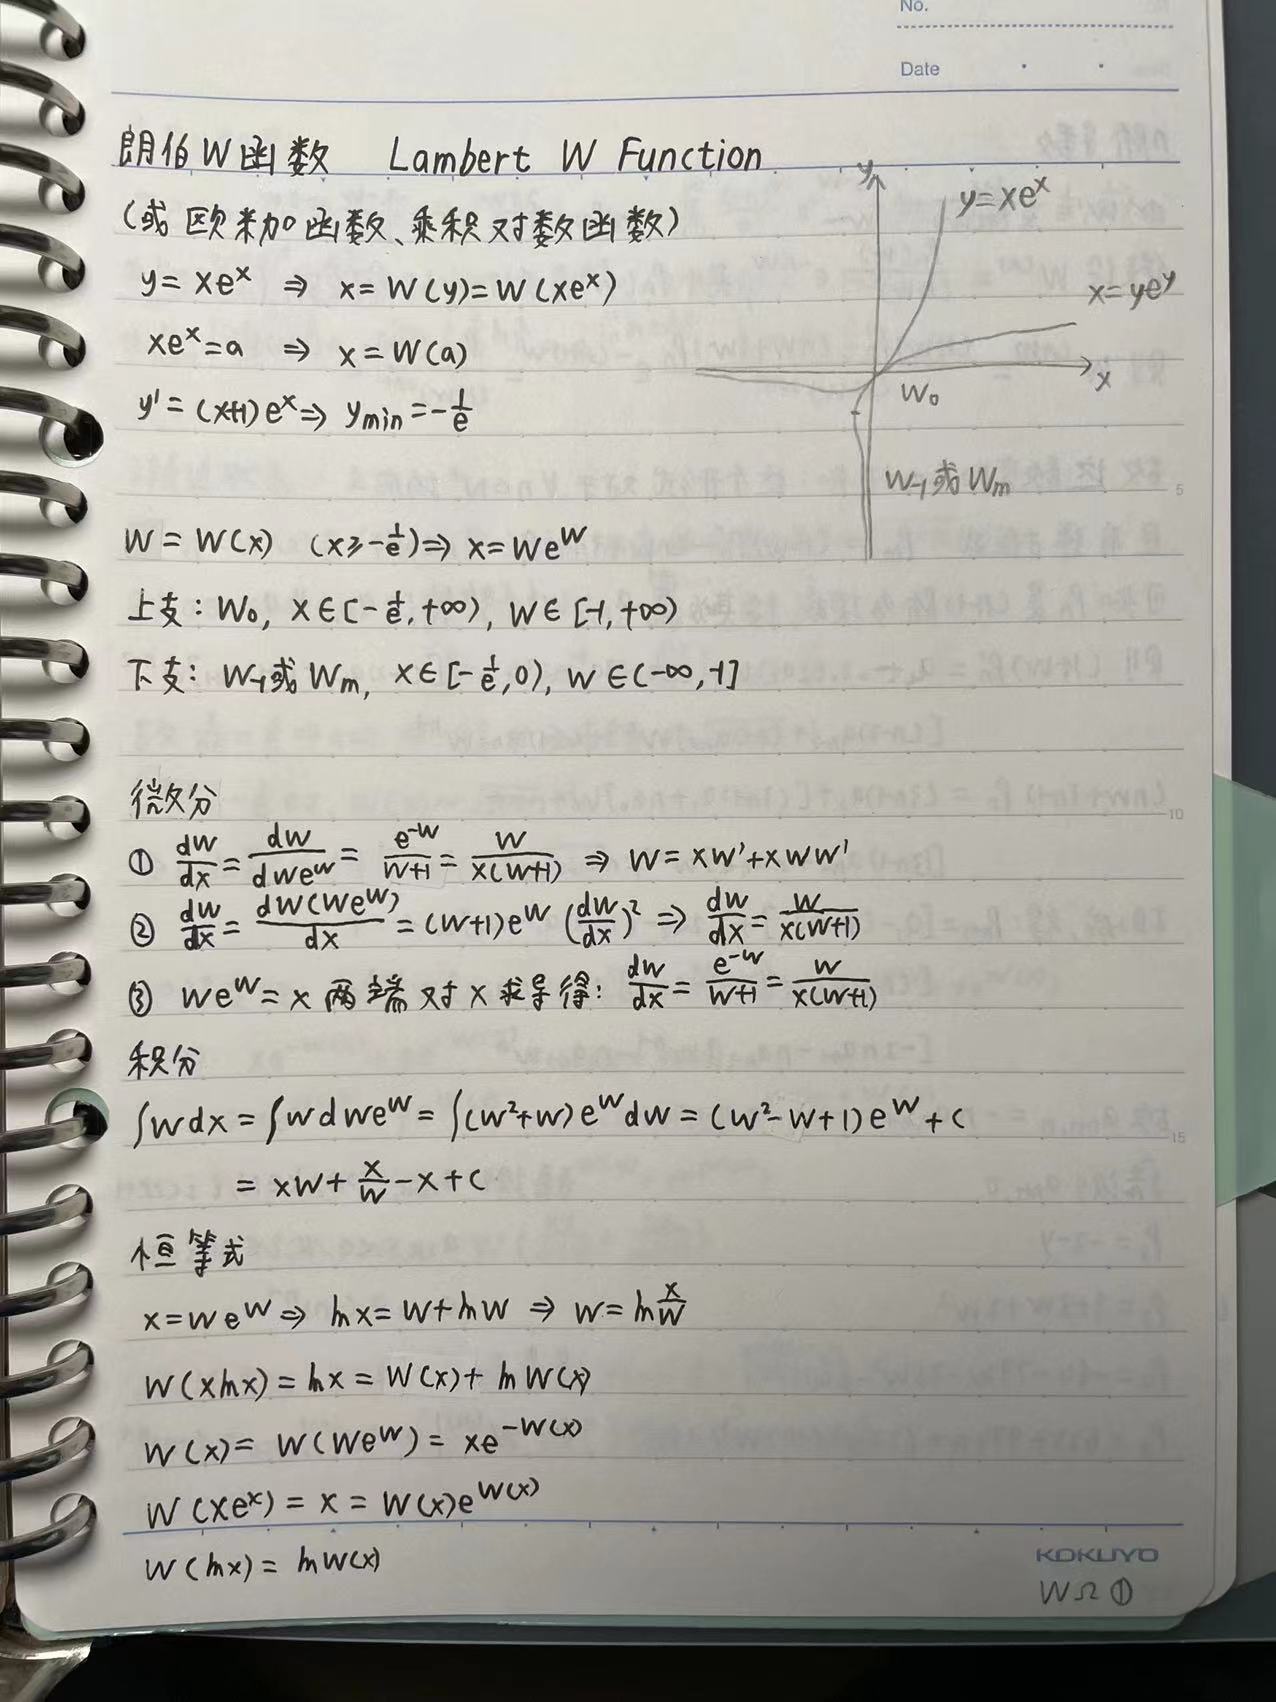 No.
Date
朗伯W函数 Lambert W Function
(或欧米加函数、乘积对数函数)
y=xeˣ ⇒ x=W(y)=W(xeˣ)
xeˣ=a ⇒ x=W(a)
y'=(x+1)eˣ⇒ y_min=-1/e
y
y=xeˣ
x=yeʸ
x
W₀
W₋₁或Wₘ
W=W(x) (x≥-1/e)⇒ x=We^W
上支: W₀, x∈[-1/e,+∞), W∈[-1,+∞)
下支: W₋₁或Wₘ, x∈[-1/e,0), W∈(-∞,-1]
微分
① dW/dx = dW/dWe^W = e^-W/(W+1) = W/x(W+1) ⇒ W=xW'+xWW'
② dW/dx = dW(We^W)/dx = (W+1)e^W (dW/dx)² ⇒ dW/dx = W/x(W+1)
③ We^W=x 两端对x求导得: dW/dx = e^-W/(W+1) = W/x(W+1)
积分
∫Wdx=∫WdWe^W=∫(W²+W)e^W dW=(W²-W+1)e^W+C
=xW+x/W-x+C
恒等式
x=We^W⇒ lnx=W+lnW ⇒ W=ln x/W
W(xlnx)=lnx=W(x)+lnW(x)
W(x)=W(We^W)=xe^-W(x)
W(xeˣ)=x=W(x)e^W(x)
W(lnx)=lnW(x)
5
10
15
KOKUYO
WΩ ①